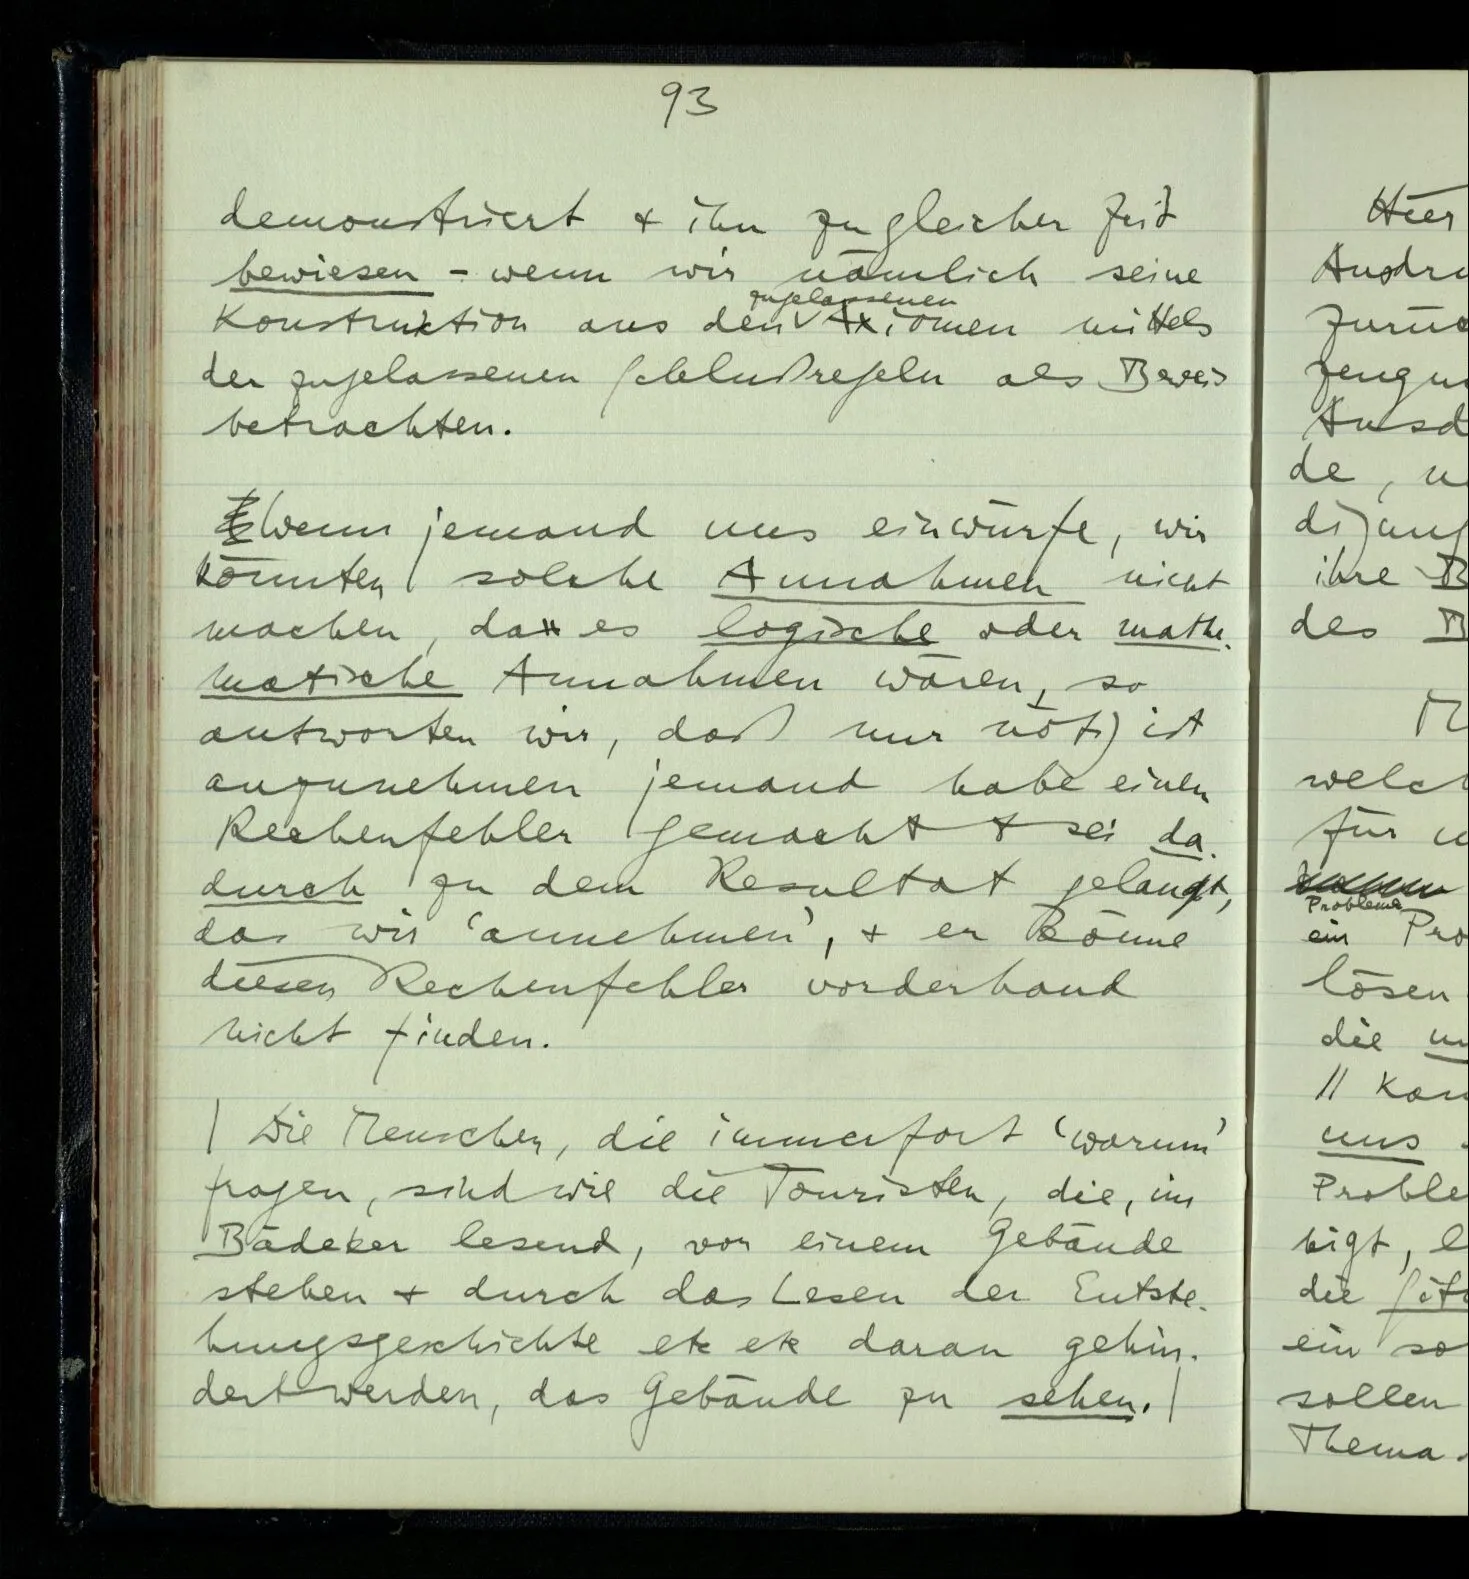 93
demonstriert + ihn zu gleicher Zeit
bewiesen – wenn wir nämlich seine
zugelassenen
Konstruktion aus den ∨ Axiomen mittels
der zugelassenen Schlußregeln als Beweis
betrachten.
Wenn jemand uns einwürfe, wir
könnten solche Annahmen nicht
machen, da es logische oder mathe-
matische Annahmen wären, so
antworten wir, daß nur nötig ist
anzunehmen jemand habe einen
Rechenfehler gemacht + sei da-
durch zu dem Resultat gelangt,
das wir ‘annehmen’, + er könne
diesen Rechenfehler vorderhand
nicht finden.
| Die Menschen, die immerfort ‘warum’
fragen, sind wie die Touristen, die, im
Bädeker lesend, vor einem Gebäude
stehen + durch das Lesen der Entste-
hungsgeschichte etc etc daran gehin-
dert werden, das Gebäude zu sehen. |
Hier
Ausdru
zurüc
zeugu
Ausd
de, u
ihre B
des B
welch
für u
Probleme
ein Pro
lösen
die
|| kan
uns
Proble
tigt, l
die
ein so
sollen
Thema.